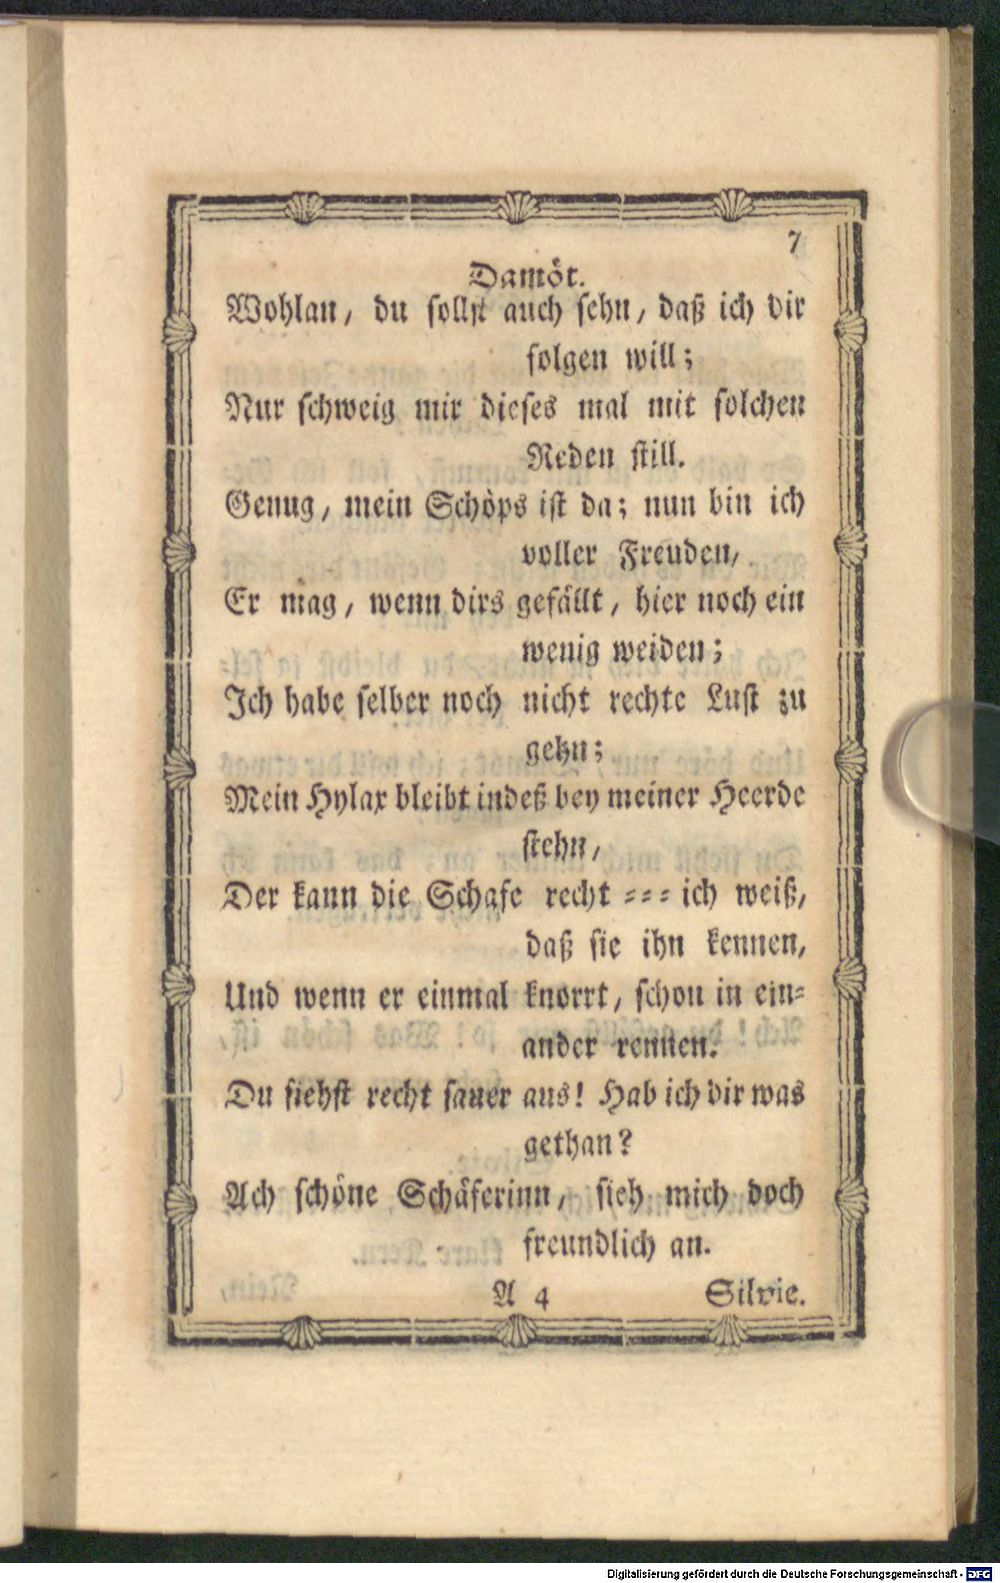 7
Damöt.
Wohlan, du sollst auch sehn, daß ich dir
folgen will;
Nur schweig mir dieses mal mit solchen
Reden still.
Genug, mein Schöps ist da; nun bin ich
voller Freuden,
Er mag, wenn dirs gefällt, hier noch ein
wenig weiden;
Ich habe selber noch nicht rechte Lust zu
gehn;
Mein Hylax bleibt indeß bey meiner Heerde
stehn,
Der kann die Schafe recht === ich weiß,
daß sie ihn kennen,
Und wenn er einmal knorrt, schon in ein=
ander rennen.
Du siehst recht sauer aus! Hab ich dir was
gethan?
Ach schöne Schäferinn, sieh mich doch
freundlich an.
A 4 Silvie.
Digitalisierung gefördert durch die Deutsche Forschungsgemeinschaft - DFG